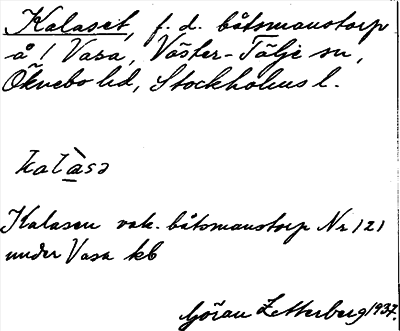 Kalaset, f. d. båtsmanstorp
å / Vasa, Väster-Tälje sn,
Öknebo hd, Stockholms l.
kalàsə
Kalasen vak. båtsmanstorp Nr 121
under Vasa kb
Göran Zetterberg 1937.